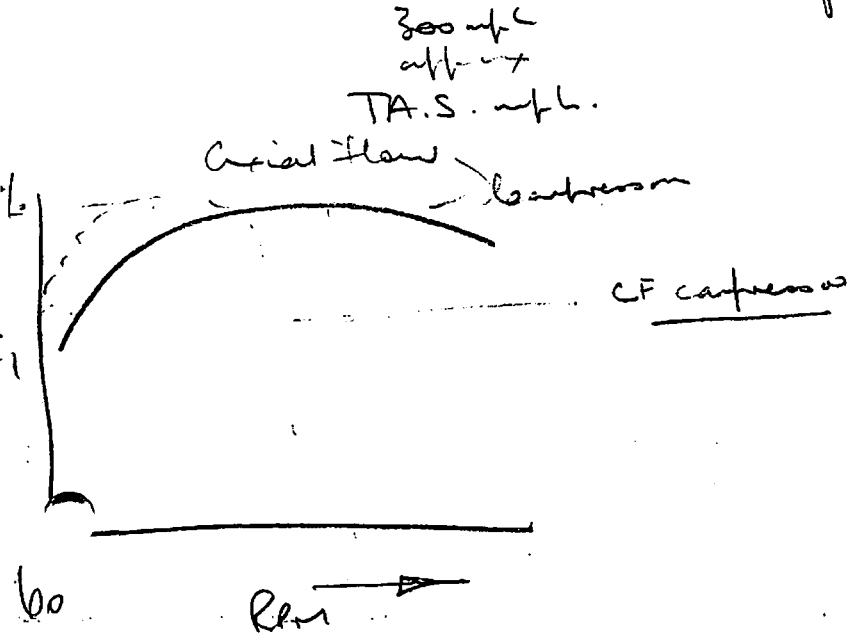 300 mph
approx
T.A.S. mph.
Axial Flow
Compressor
%
CF compressor
60
RPM